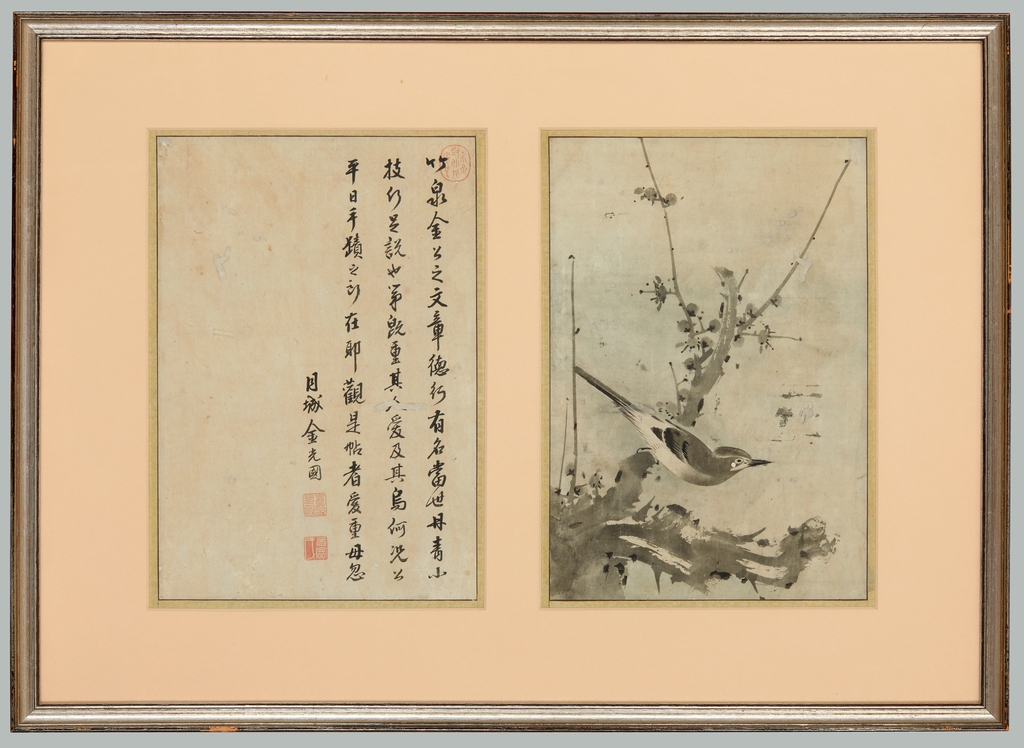 竹泉金公之文章德行有名當世丹青小
技何足說也第旣重其人愛及其烏何況公
平日手蹟之所在耶觀是帖者愛重毋忽
月城金光國